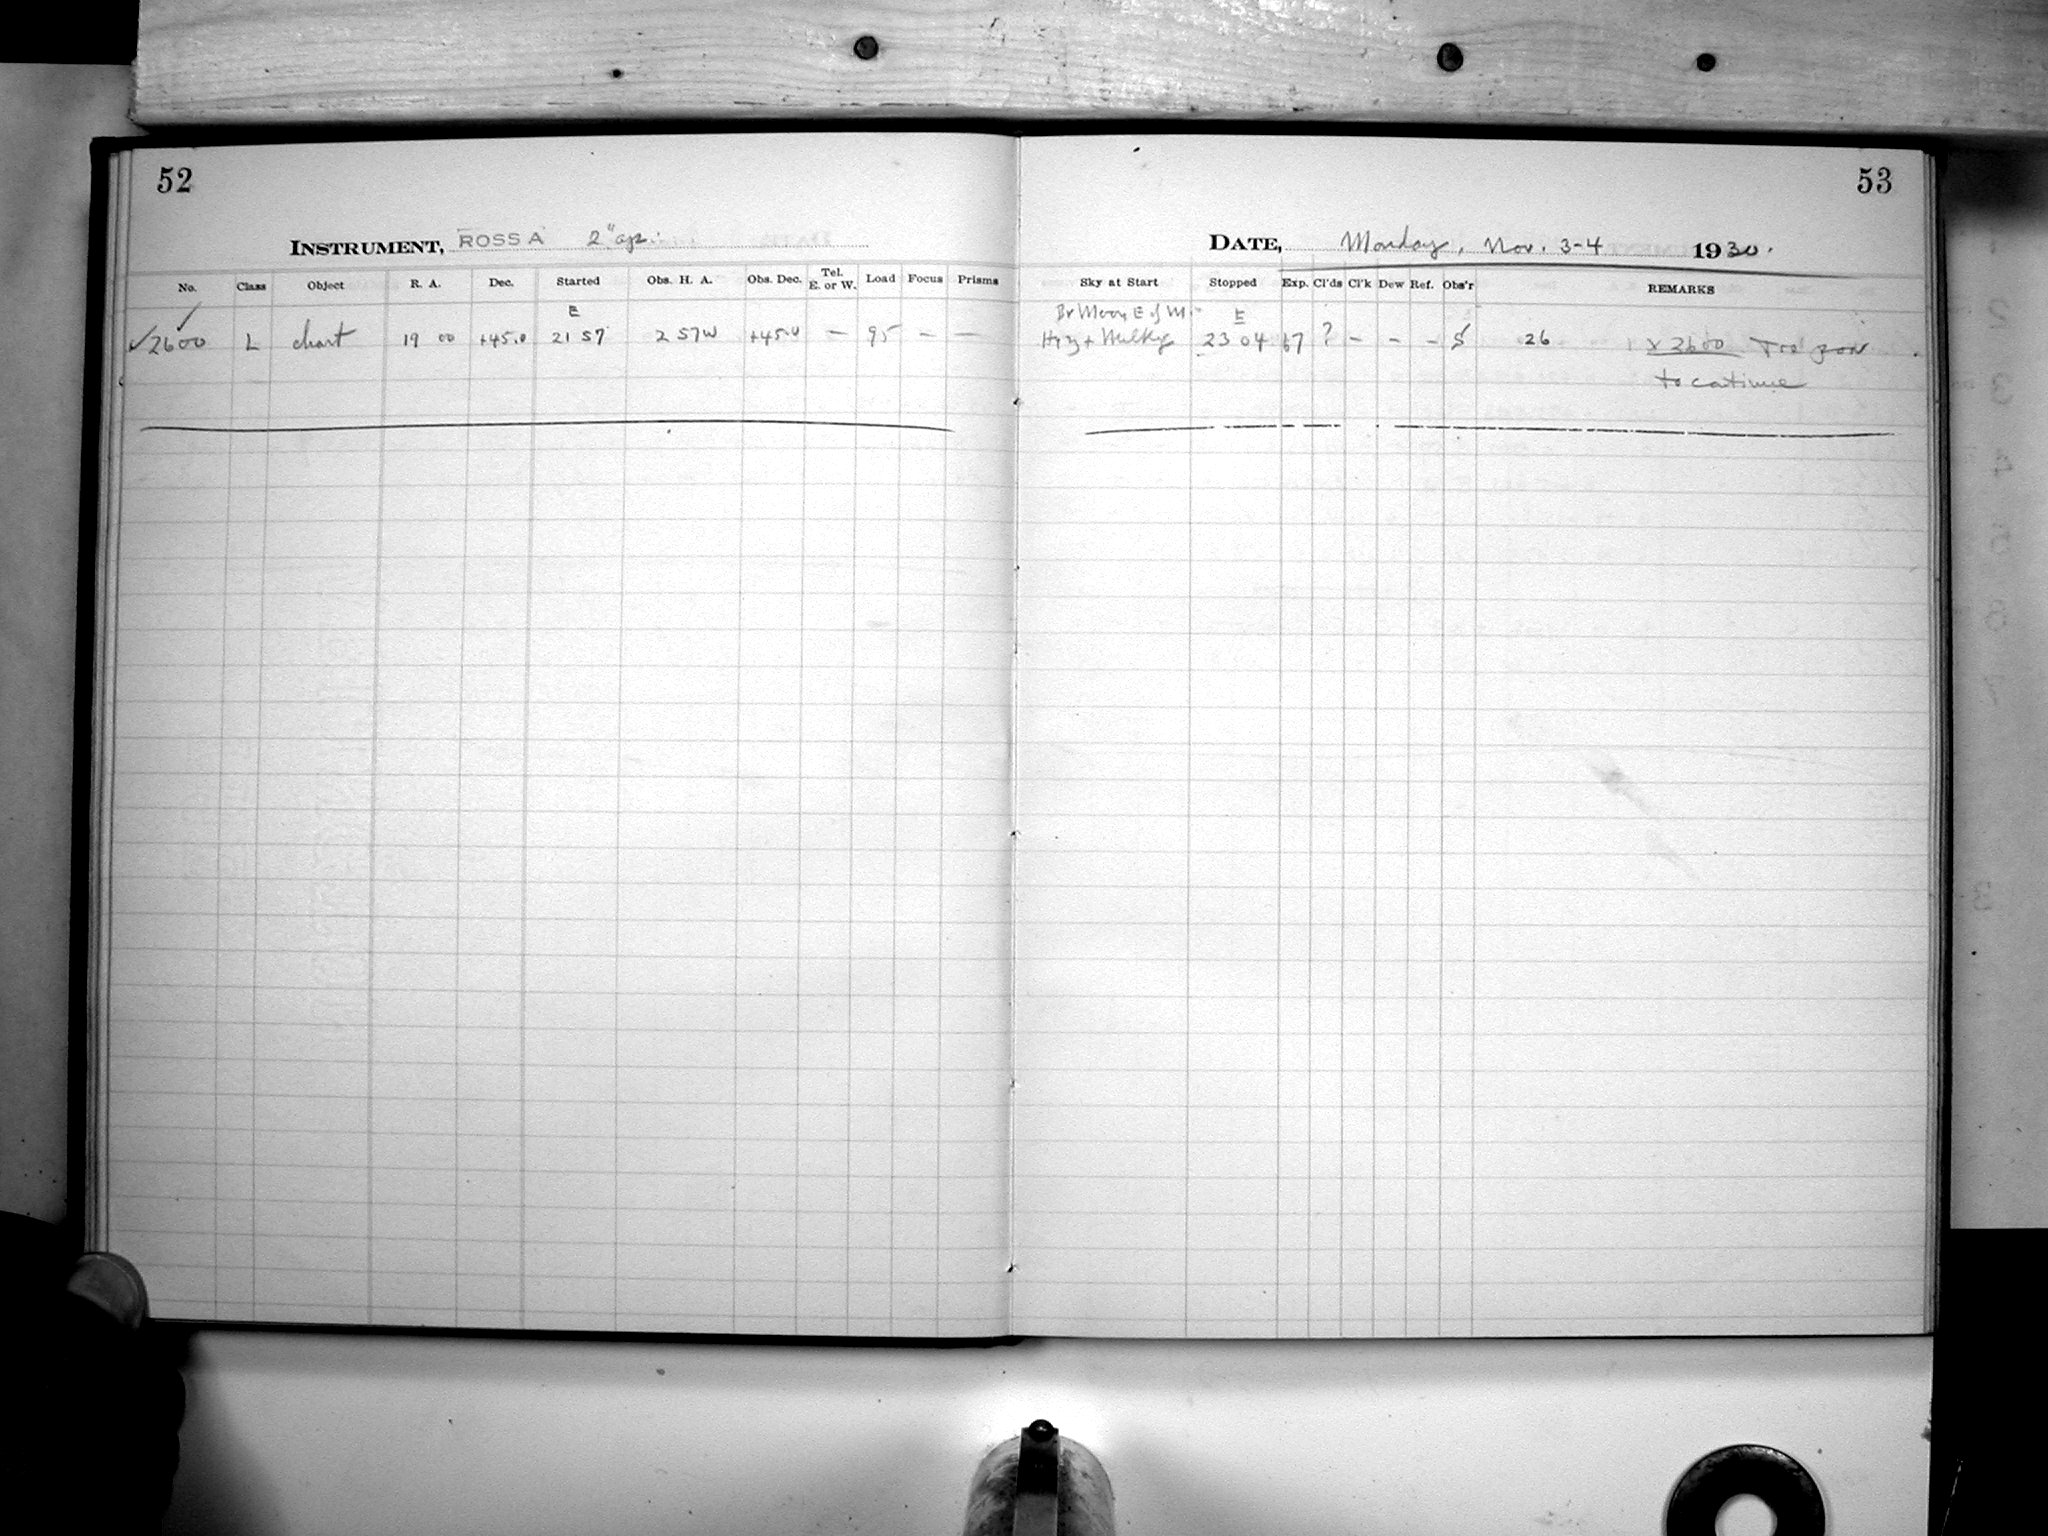 52
INSTRUMENT, ROSS A 2" ap.
No. Class Object R. A. Dec. Started Obs. H. A. Obs. Dec. Tel. E. or W. Load Focus Prisms
E
✓2600 L chart 19 00 +45.0 21 57 2 57W +45.0 — 95 — —
53
DATE, Monday, Nov. 3-4 1930.
Sky at Start Stopped Exp. Cl'ds Cl'k Dew Ref. Obs'r REMARKS
Br Moon E of M. E
Hzy + Milky 23 04 67 ? - - - S 26 x 2600 Too
to continue